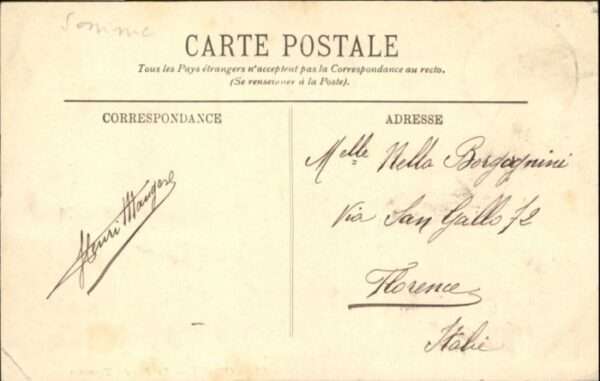 Somme
CARTE POSTALE
Tous les Pays étrangers n'acceptent pas la Correspondance au recto.
(Se renseigner à la Poste).
CORRESPONDANCE
ADRESSE
Melle Nella Borgognini
Via San Gallo 72
Florence
Italie
Henri